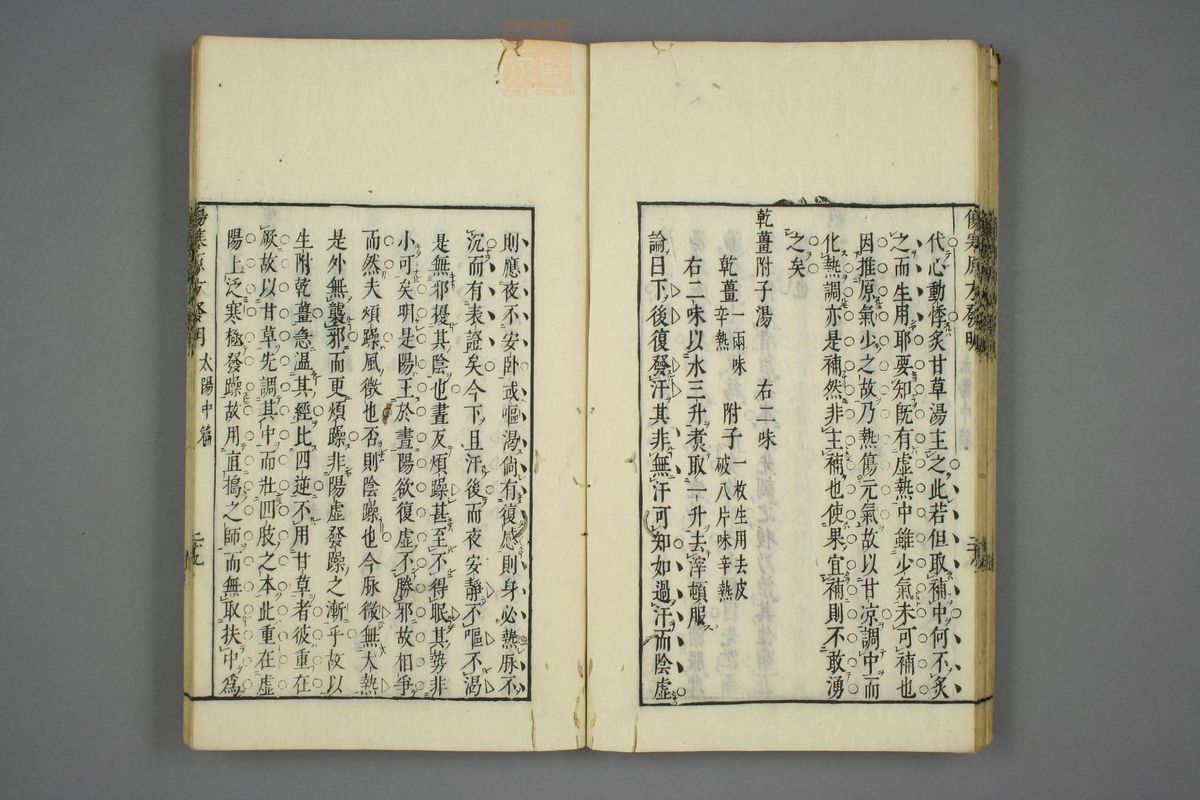 代心動悸炙甘草湯主之此若但取補中何不炙
之而生用耶要知既有虛熱中雖少氣未可補也
因推原氣少之故乃熱傷元氣故以甘凉調中而
化熱調亦是補然非主補也使果宜補則不敢湧
之矣
乾薑附子湯　右二味
乾薑一兩味辛熱　附子一枚生用去皮破八片味辛熱
右二味以水三升煮取一升去滓頓服
論曰下後復發汗其非無汗可知如過汗而陰虛
則應夜不安卧或嘔渴倘有復感則身必熱脉不
沉而有表證矣今下且汗後而夜安靜不嘔不渴
是無邪擾其陰也晝反煩躁甚至不得眠其勢非
小可矣明是陽王於晝陽欲復虛不勝邪故相爭
而然夫煩躁風徵也否則陰躁也今脉微無大熱
是外無襲邪而更煩躁非陽虛發躁之漸乎故以
生附乾薑急温其經比四逆不用甘草者彼重在
厥故以甘草先調其中而壯四肢之本此重在虛
陽上泛寒極發躁故用直搗之師而無取扶中爲
傷寒原方發明
太陽中篇
二十九
zysj.com.cn